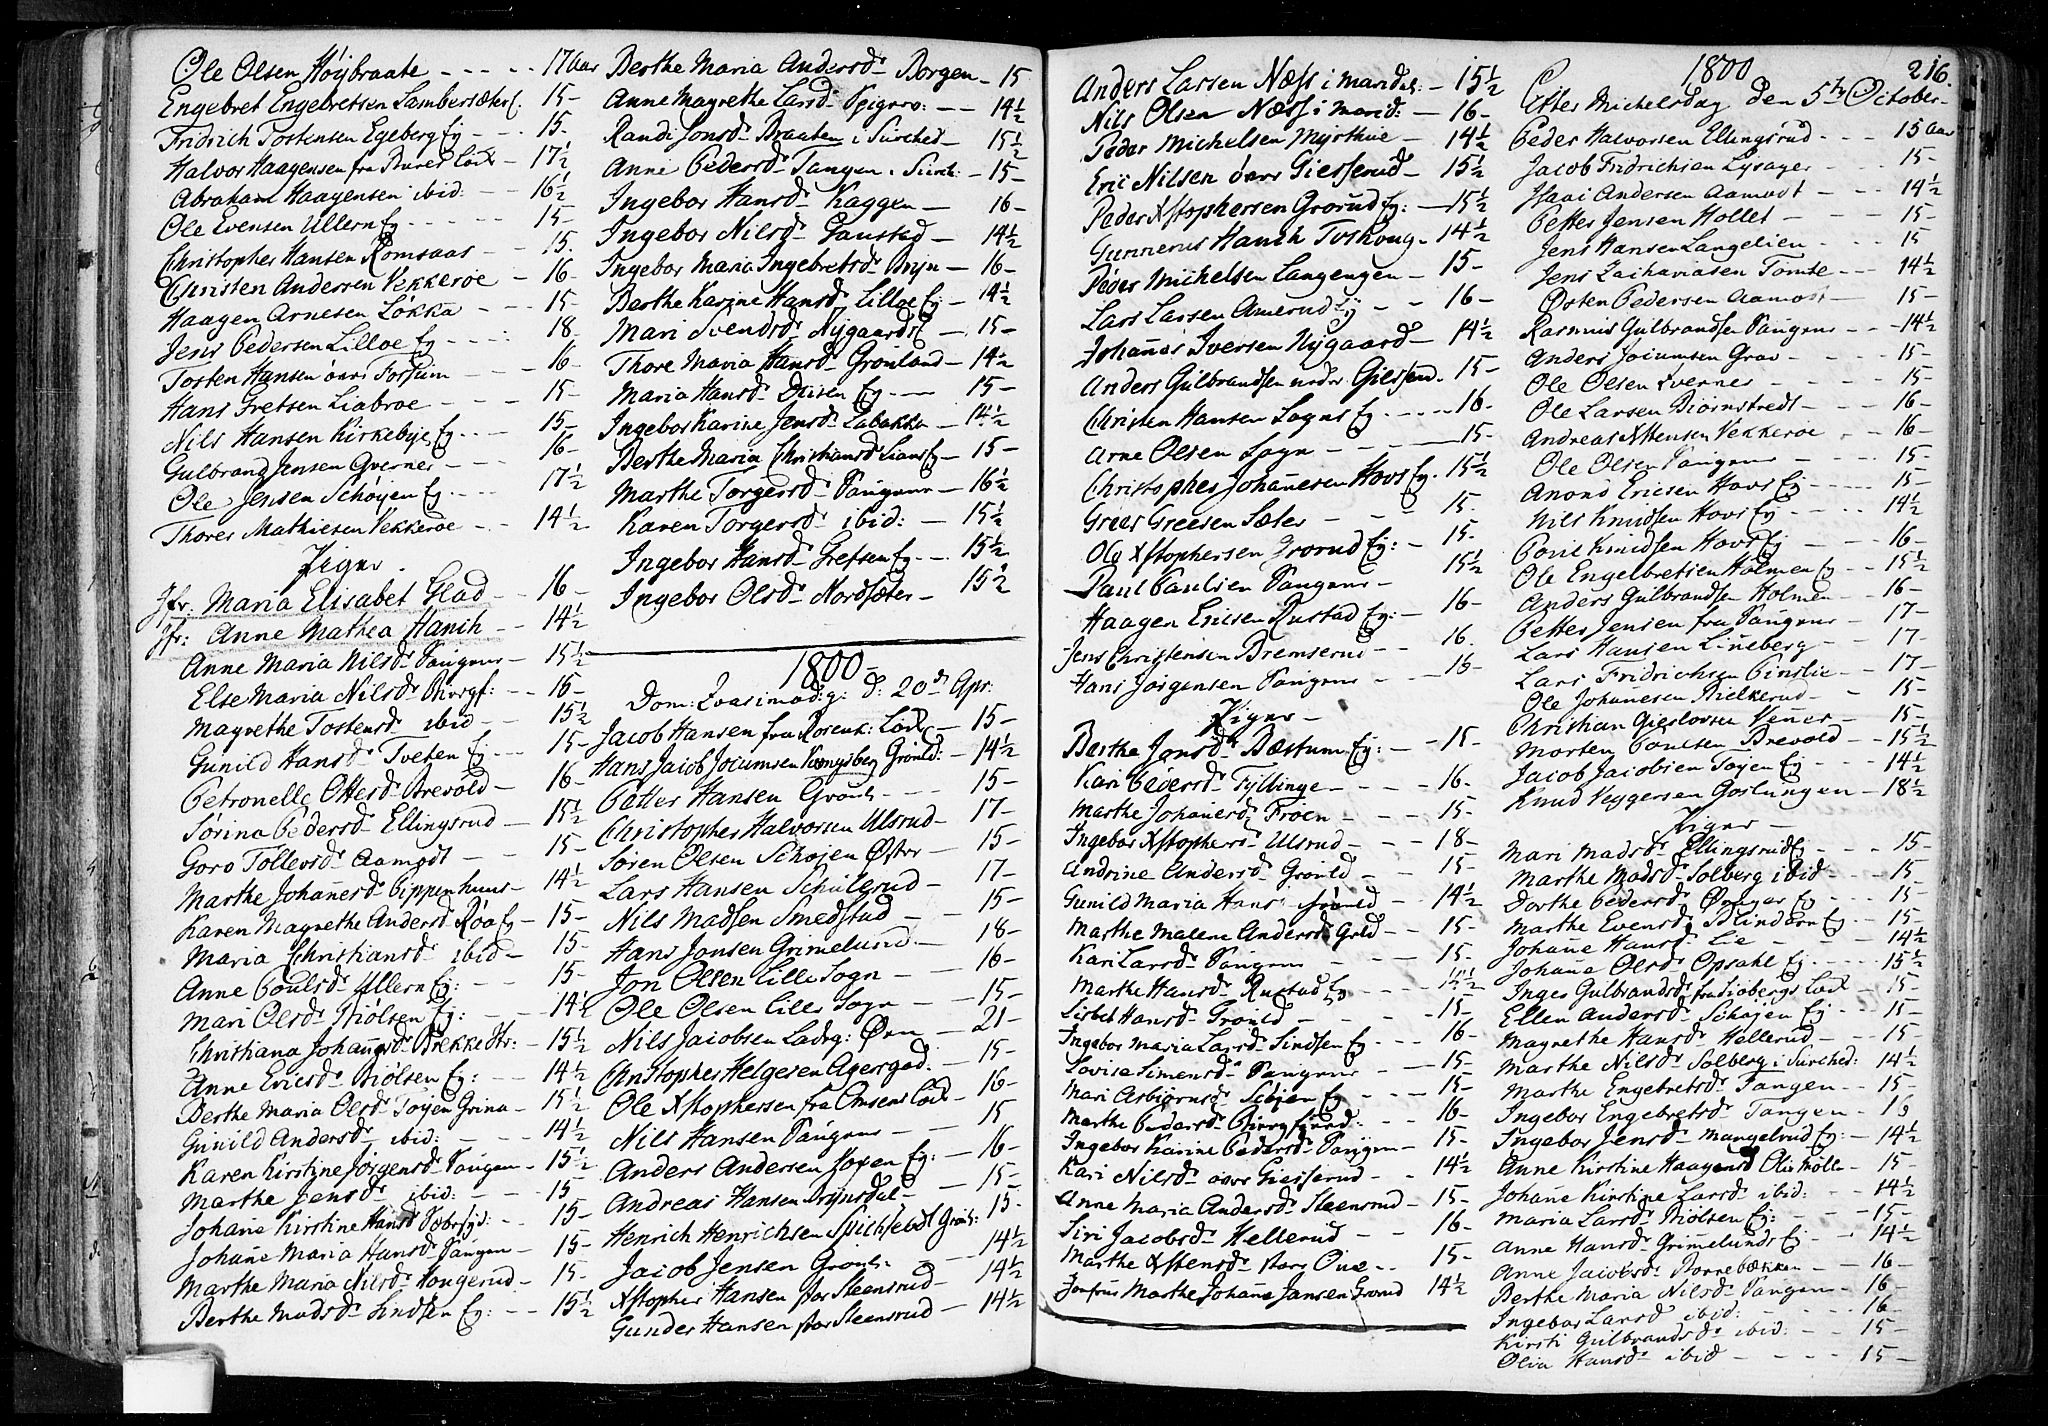 Ole Olsen Höybraate - - - - 17 aar
Engebret Engebretsen Lambersæter E. 15 -
Fridrich Tostensen Egeberg Eg - - - 15 -
Halvor Haagensen fra - 17½
Abraham Haagensen ibid: - - 16½
Ole Evensen Ullern Eg - - - - 15 -
Christopher Hansen Romsaas - - 15 -
Christen Andersen Vekkeröe - 16 -
Haagen Arnesen Lökka - - - 15 -
Jens Pedersen Lilloe Eg - - - - 18
Tosten Hansen övre Forsum - - - 16 -
Hans Liabroe - - - - 15 -
Nils Hansen Kirkebye Eg - - - 15 -
Gulbrand Jensen Qverner - - - 16 -
Ole Jensen Schöyen Eg - - - - 17½
Thores Mathiesen Vekkeröe - - 14½
Piger
Jfr: Maria Elisabet Glad - - 16 -
Jfr: Anne Mathea Hanch - - 14½
Anne Maria Nilsd. Vaagens - 15½
Else Maria Nilsd. - - 16 -
Magrethe Tostensd. ibid - - 15½
Gunild Hansd. Tveten Eg - - 15 -
Petronelle Ottersd. Brevold - 16 -
Sörina Pedersd. Ellingsrud - - 15½
Goro Tollevsd. Aamodt - - 15 -
Marthe Johannesd. Pippenhuus - 14½
Karen Magrethe Andersd. Röa Eg - 15 -
Maria Christiansd. ibid - 15 -
Anne Poulsd. Ullern Eg: - - 15 -
Mari Olsd. Biölsen Eg: - 14½
Christiana Johannesd. Brekke - 15½
Anne Ericsd. Biölsen Eg: - - 14½
Berthe Maria Olsd. Töyen Grina - 15½
Gunild Andersd. ibid: - - 14½
Karen Kirstine Jörgensd. Vaagen - 15½
Marthe Jensd. ibid: - - 15
Johane Kirstine Hansd. - - 15 -
Johane Maria Hansd. Vaagen - 15 -
Marthe Maria Nilsd. Haugerud - 15 -
Berthe Madsd. Lindsen Eg: - - 15½
Berthe Maria Andersd. Borgen - 15
Anne Magrethe Larsd. Spigerv: - - 14½
Randi Jonsd. Braaten i Surched - 15½
Anne Pedersd. Tangen i Surch: - 15 -
Ingebor Hansd. Kaggen - 16 -
Ingebor Nilsd. Gausted - 14½
Ingebor Maria Ingebretsd. Bryn - 16 -
Berthe Karine Hansd. Lilloe Eg - 14½
Mari Svendsd. Nygaard - 15 -
Thore Maria Hansd. Grönland - 14½
Maria Hansd. Disen Eg - - 15 -
Ingebor Karine Jensd. Labakke - 14½
Berthe Maria Christiansd. Lians Eg - 15 -
Marthe Torgersd. Vaagens - 16½
Karen Torgersd. ibid: - 15½
Ingebor Hansd. Grefsen Eg - - 15½
Ingebor Olsd. Nordsæter - 15½
1800
Dom: Qvasimodog: d: 20de Apr:
Jacob Hansen fra Rosenk: Löck - 15 -
Hans Jacob Jocumsen Kongsberg Grönld: - 14½
Petter Hansen Grönl - - - 15 -
Christopher Halvorsen Ulsrud - 17 -
Sören Olsen Schöjen Öster - - 15 -
Lars Hansen Schulerud - 17 -
Nils Madsen Smedstad - - 15 -
Hans Jonsen Grimelund - 18 -
Jon Olsen Lille Sogn - - 16 -
Ole Olsen Lille Sogn - - 15 -
Nils Jacobsen Ladeg: Öen - 21 -
Christopher Helgesen Agersgad. - 15 -
Ole Xstophersen fra Löck - 16 -
Nils Hansen Vaagens - - 15
Anders Andersen Hoyen Eg: - 16 -
Andreas Hansen Brynsdal - - 15 -
Henrich Henrichsen Grönl: 15 -
Jacob Jensen Grönl. - 14½
Xstopher Hansen stor Steensrud - 14½
Gunder Hansen stor Steensrud - 14½
Anders Larsen Næss i Maridal: - 15½
Nils Olsen Næss i Marid: - 16 -
Peder Michelsen Myrthue - 14½
Eric Nilsen övre Giesserud - 15½
Peder Xstophersen Grorud Eg: - 15½
Gunnerus Hanch Toshoug - 14½
Peder Michelsen Langengen - 15 -
Lars Larsen Amerud Eg - - 16 -
Johanes Iversen Nygaard - 14½
Anders Gulbrandsen neder Giesserud - 15 -
Christen Hansen Sogns Eg - - - - 16 -
Arne Olsen Sogn - - - 15 -
Christopher Johanesen Hovs Eg. 15½
Grees Greesen Sæter - - - 15 -
Ole Xstophersen Grorud Eg: - 15 -
Paul Paulsen Vaagens - 15½
Haagen Ericsen Rustad Eg: - 16 -
Jens Christensen Bremserud - - 16
Hans Jörgensen Vaagens - - - 16 -
Piger -
Berthe Jonsd. Bæstum Eg: - - 15 -
Kari Pedersd. Fyllinge - - - - 16 -
Marthe Johanesd. Froen - - - - 15 -
Ingebor Xstophersd. Ulsrud - - - 18 -
Andrine Andersd. Grönld - - 15 -
Gunild Maria Hansd. Grönld - 14½
Marthe Malene Andersd. Grld - - 15 -
Kari Larsd. Vaagens - - - - 15 -
Marthe Hansd. Rustad Eg - - -
Lisbet Hansd. Grönld - - - - 15 -
Ingebor Maria Larsd. Lindsen Eg - - - 16 -
Lovise Simensd. Vaagens - - - 15 -
Mari Asbiörnsd. Schöjen Eg - - - 15 -
Marthe Pedersd. - 16 -
Ingebor Karine Pedersd. Vaagen - 15 -
Kari Nilsd. övre Giesserud - - 14½
Anne Maria Andersd. Steensrud - 15 -
Siri Jacobsd. Hellerud - - 16 -
Marthe Xstensd. store - - 15 -
Jomfrue Marthe Johane Jansen Grorud 14½
1800 216.
Efter Michelsdag den 5te October -
Peder Halvorsen Ellingsrud - - - 15 aar
Jacob Fridrichsen Lysager - - - 15 -
Isaac Andersen Aamodt - - - 14½
Petter Jensen Hollet - - - 15 -
Jens Hansen Langelien - - - 15
Jens Zachariasen Tömte - - - 14½
Osten Pedersen Aamodt - - - 15 -
Rasmus Gulbrandsen Vaagens - - - 14½
Anders Jocumsen Grav - - - - 15 -
Ole Olsen Qverner - - - - 15 -
Ole Larsen Biörnstedt - - - 16 -
Andreas Xstensen Vekkeröe - - 16 -
Ole Olsen Vaagens - - - - 15 -
Anond Ericsen Hovs Eg - - - - 15 -
Nils Knudsen Hovs Eg - - - 14½
Povil Knudsen Hovs Eg - - - 16 -
Ole Engelbretsen Holmen Eg - - 15½
Anders Gulbrandsen Holmen - - 16 -
Petter Jensen fra Vaagens - - 17 -
Lars Hansen Lineberg - - 17 -
Lars Fridrichsen - - 17 -
Ole Johanesen Bielkerud - - 15 -
Christian - 15 -
Morten Poulsen Brevold - - 15½
Jacob Jacobsen Töjen Eg - - - 14½
Knud Veggersen Goslungen - 18½
Piger -
Mari Madsd. Ellingsrud Eg - - - 15 -
Marthe Madsd. Solberg ibid - - - 15 -
Dorthe Pedersd. Eg - - - 15 -
Marthe Evensd. Blindern Eg - - - 15 -
Johane Hansd. Lie - - - - 14½
Johane Olsd. Opsahl Eg - - - - 15½
Inger Gulbrandsd. fra Löck - 15 -
Ellen Andersd. Schöjen Eg - - 15 -
Magrethe Hansd. Hellerud - - - 15 -
Marthe Nilsd. Solberg i Surched: 14½
Marthe Engebretsd. Tangen - - 15 -
Ingebor Engebretsd. Tangen - 16
Ingebor Jensd. Mangelrud Eg: - 14½
Anne Kirstine Haagensd. Mölle - 15 -
Johane Kirstine Larsd. ibid: - - 14½
Maria Larsd. Biölsen Eg: - - - 15 -
Anne Hansd. Grimelunds Eg - - 14½
Anne Jacobsd. Storrebækken - - 16 -
Berthe Maria Nilsd. Vaagen - - 16
Ingebor Larsd. ibid: - - - 16 -
Kirsti Gulbrandsd. ibid: - - 15 -
Olia Hansd. ibid - - - - 15 -